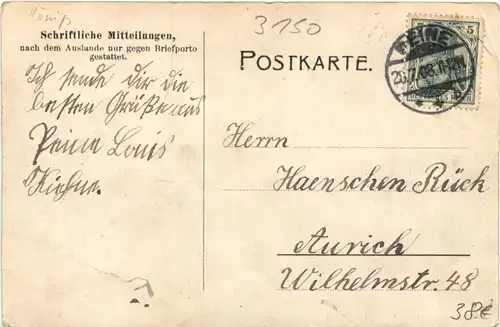 3150
Schriftliche Mitteilungen,
nach dem Auslande nur gegen Briefporto
gestattet.
Ich sende dir die
besten Grüße aus
Peine Louis
Kiehne.
POSTKARTE.
PEINE
5
Herrn
Haenschen Rück
Aurich
Wilhelmstr. 48
38€